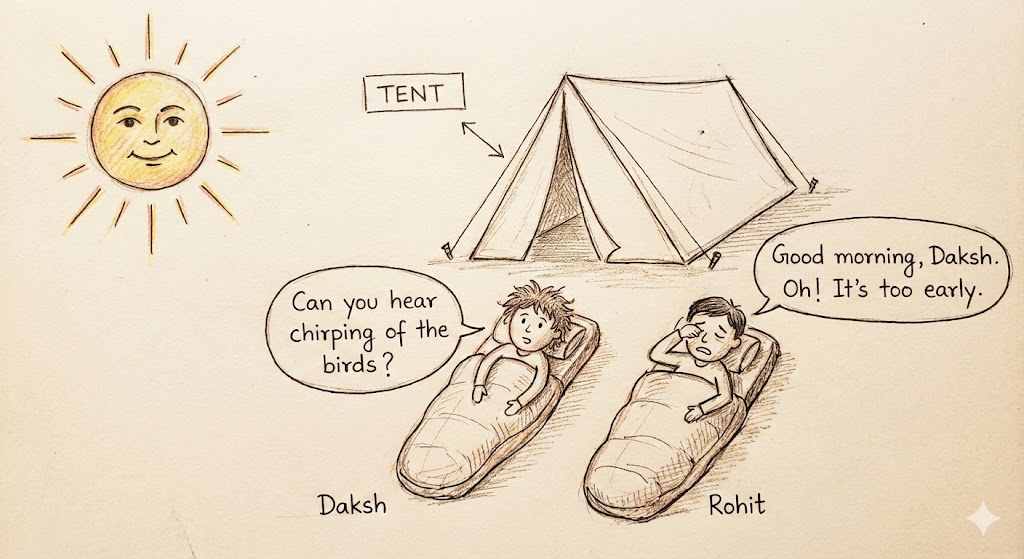 TENT
Can you hear
chirping of the
birds?
Good morning, Daksh.
Oh! It's too early.
Daksh
Rohit